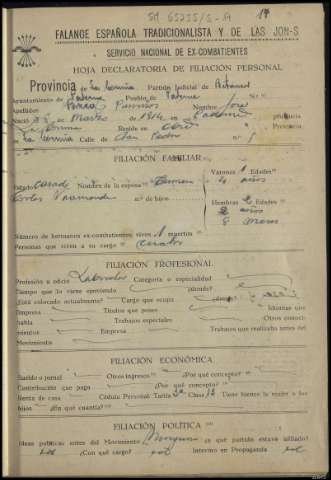 SM 65255/S-A 14
FALANGE ESPAÑOLA TRADICIONALISTA Y DE LAS JON-S
SERVICIO NACIONAL DE EX-COMBATIENTES
HOJA DECLARATORIA DE FILIACIÓN PERSONAL
Provincia de La Coruña Partido Judicial de Betanzos
Ayuntamiento de Paderne Pueblo de Paderne N.º
Apellidos Nombre José
Nació de Marzo de 1914 en Paderne provincia
La Coruña Reside en Provincia
La Coruña Calle de San Pedro n.º 5
FILIACIÓN FAMILIAR
Varones 1 Edades
Estado casado Nombre de la esposa Carmen 4 años
n.º de hijos
Hembras 2 Edades
2 años
8 meses
Número de hermanos ex-combatientes viven 1 muertos
Personas que viven a su cargo cuatro
FILIACIÓN PROFESIONAL
Profesión u oficio Labrador Categoría o especialidad
Tiempo que lo viene ejerciendo ¿dónde?
¿Está colocado actualmente? Cargo que ocupa
Empresa Títulos que posee Idiomas que
habla Trabajos especiales Otros conoci-
mientos Empresa Trabajos que realizaba antes del
Movimiento
FILIACIÓN ECONÓMICA
Sueldo o jornal Otros ingresos ¿Por qué conceptos?
Contribución que paga ¿Por qué concepto?
Renta de casa Cédula Personal Tarifa Clase Tiene bienes la mujer o los
hijos ¿En qué cuantía?
FILIACIÓN POLÍTICA
Ideas políticas antes del Movimiento Ninguna ¿a qué partido estuvo afiliado?
¿Con qué cargo? Intervino en Propaganda